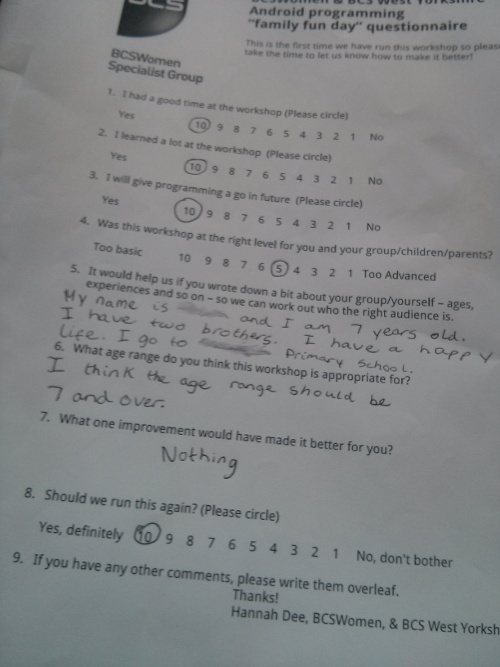 BCS
BCSWomen & BCS West Yorkshire
Android programming
"family fun day" questionnaire
This is the first time we have run this workshop so please
take the time to let us know how to make it better!
BCSWomen
Specialist Group
1. I had a good time at the workshop (Please circle)
Yes 10 9 8 7 6 5 4 3 2 1 No
2. I learned a lot at the workshop (Please circle)
Yes 10 9 8 7 6 5 4 3 2 1 No
3. I will give programming a go in future (Please circle)
Yes 10 9 8 7 6 5 4 3 2 1 No
4. Was this workshop at the right level for you and your group/children/parents?
Too basic 10 9 8 7 6 5 4 3 2 1 Too Advanced
5. It would help us if you wrote down a bit about your group/yourself – ages,
experiences and so on – so we can work out who the right audience is.
My name is and I am 7 years old.
I have two brothers. I have a happy
life. I go to Primary School.
6. What age range do you think this workshop is appropriate for?
I think the age range should be
7 and over.
7. What one improvement would have made it better for you?
Nothing
8. Should we run this again? (Please circle)
Yes, definitely 10 9 8 7 6 5 4 3 2 1 No, don't bother
9. If you have any other comments, please write them overleaf.
Thanks!
Hannah Dee, BCSWomen, & BCS West Yorksh